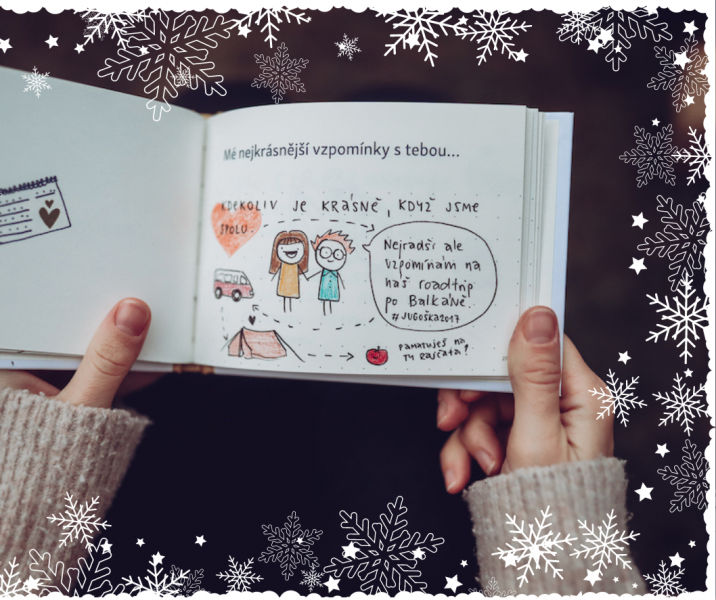 Mé nejkrásnější vzpomínky s tebou...
KDEKOLIV JE KRÁSNĚ, KDYŽ JSME
SPOLU.
Nejradši ale
vzpomínám na
náš roadtrip
po Balkáně.
#JUGOŠKA2017
PAMATUJEŠ NA
TY RAJČATA?